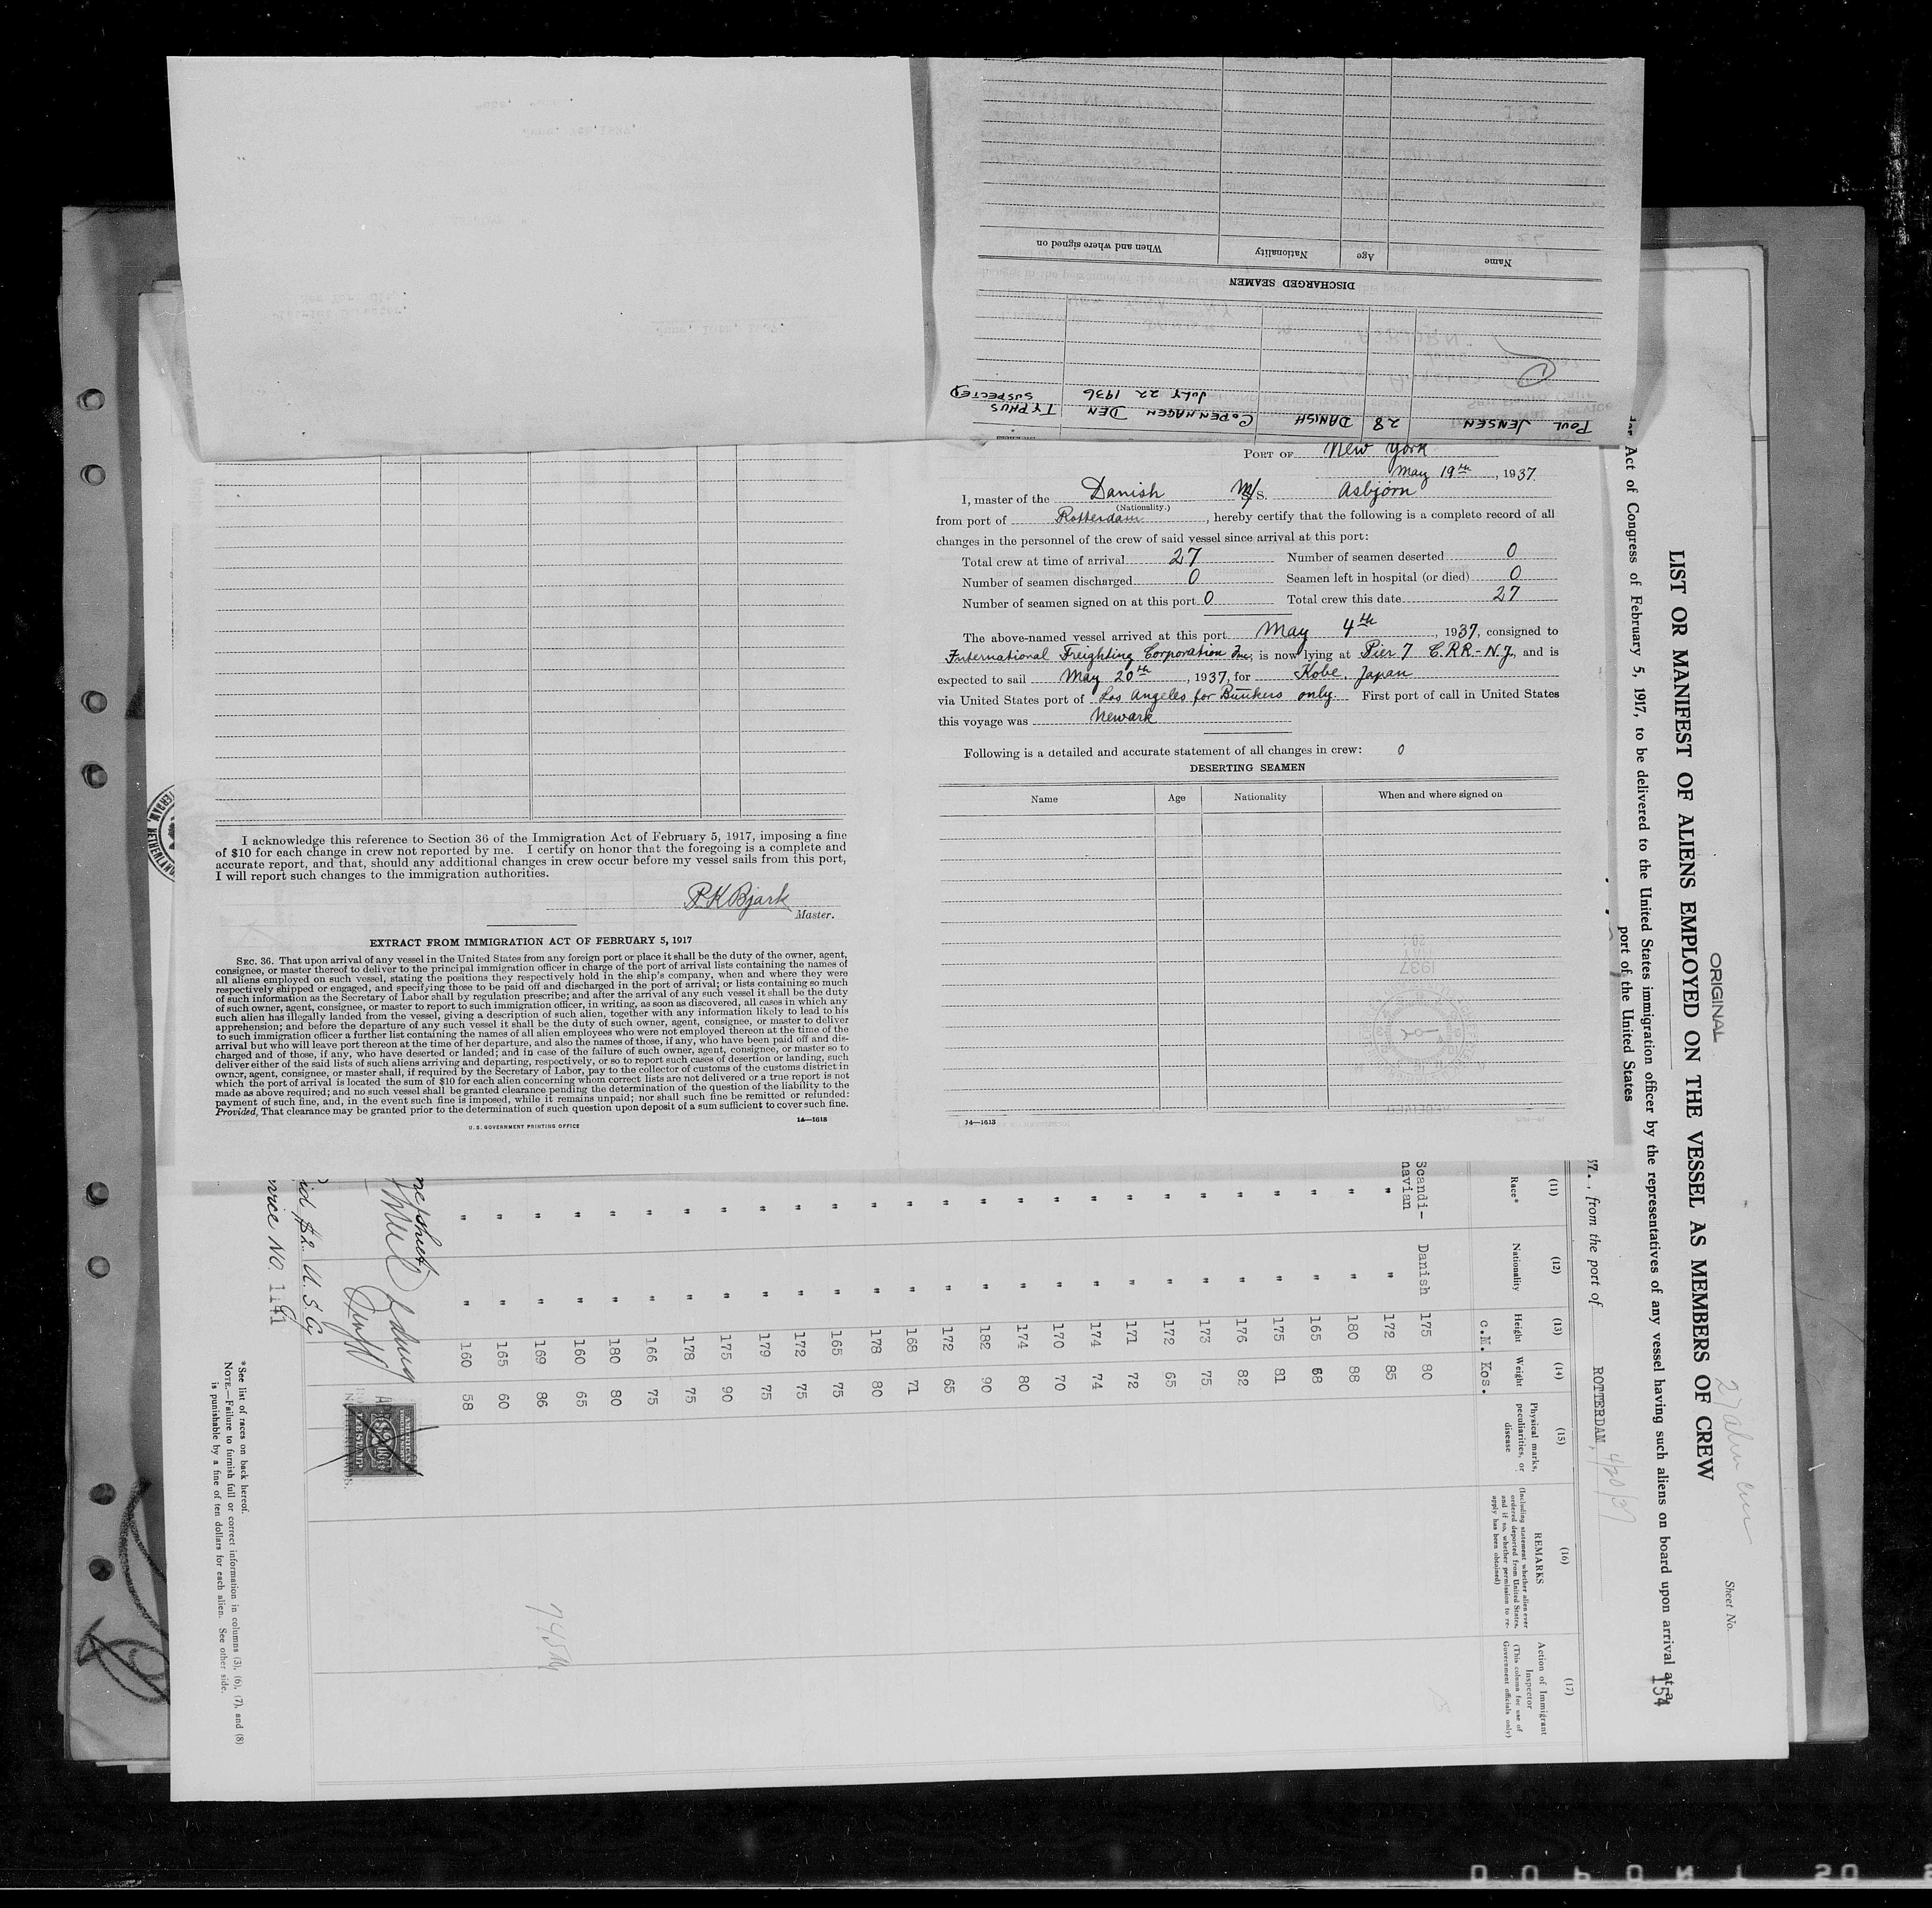 Name
Age
Nationality
When and where signed on
DISCHARGED SEAMEN
POUL JENSEN 28 DANISH COPENHAGEN DEN TYPHUS
JULY 22 1936 SUSPECTED
PORT OF New York
May 19th, 1937.
I, master of the Danish M/S. Asbjørn
(Nationality.)
from port of Rotterdam, hereby certify that the following is a complete record of all
changes in the personnel of the crew of said vessel since arrival at this port:
Total crew at time of arrival 27 Number of seamen deserted 0
Number of seamen discharged 0 Seamen left in hospital (or died) 0
Number of seamen signed on at this port 0 Total crew this date 27
The above-named vessel arrived at this port May 4th, 1937, consigned to
International Freighting Corporation Inc, is now lying at Pier 7 C.R.R.-N.J., and is
expected to sail May 20th, 1937, for Kobe, Japan
via United States port of Los Angeles for Bunkers only. First port of call in United States
this voyage was Newark
Following is a detailed and accurate statement of all changes in crew: 0
DESERTING SEAMEN
Name Age Nationality When and where signed on
14—1613
I acknowledge this reference to Section 36 of the Immigration Act of February 5, 1917, imposing a fine
of $10 for each change in crew not reported by me. I certify on honor that the foregoing is a complete and
accurate report, and that, should any additional changes in crew occur before my vessel sails from this port,
I will report such changes to the immigration authorities.
P.K Bjark
Master.
EXTRACT FROM IMMIGRATION ACT OF FEBRUARY 5, 1917
SEC. 36. That upon arrival of any vessel in the United States from any foreign port or place it shall be the duty of the owner, agent,
consignee, or master thereof to deliver to the principal immigration officer in charge of the port of arrival lists containing the names of
all aliens employed on such vessel, stating the positions they respectively hold in the ship's company, when and where they were
respectively shipped or engaged, and specifying those to be paid off and discharged in the port of arrival; or lists containing so much
of such information as the Secretary of Labor shall by regulation prescribe; and after the arrival of any such vessel it shall be the duty
of such owner, agent, consignee, or master to report to such immigration officer, in writing, as soon as discovered, all cases in which any
such alien has illegally landed from the vessel, giving a description of such alien, together with any information likely to lead to his
apprehension; and before the departure of any such vessel it shall be the duty of such owner, agent, consignee, or master to deliver
to such immigration officer a further list containing the names of all alien employees who were not employed thereon at the time of the
arrival but who will leave port thereon at the time of her departure, and also the names of those, if any, who have been paid off and dis-
charged and of those, if any, who have deserted or landed; and in case of the failure of such owner, agent, consignee, or master so to
deliver either of the said lists of such aliens arriving and departing, respectively, or so to report such cases of desertion or landing, such
owner, agent, consignee, or master shall, if required by the Secretary of Labor, pay to the collector of customs of the customs district in
which the port of arrival is located the sum of $10 for each alien concerning whom correct lists are not delivered or a true report is not
made as above required; and no such vessel shall be granted clearance pending the determination of the question of the liability to the
payment of such fine, and, in the event such fine is imposed, while it remains unpaid; nor shall such fine be remitted or refunded:
Provided, That clearance may be granted prior to the determination of such question upon deposit of a sum sufficient to cover such fine.
U. S. GOVERNMENT PRINTING OFFICE
14—1613
ORIGINAL
Sheet No.
27 alien crew
LIST OR MANIFEST OF ALIENS EMPLOYED ON THE VESSEL AS MEMBERS OF CREW
Act of Congress of February 5, 1917, to be delivered to the United States immigration officer by the representatives of any vessel having such aliens on board upon arrival at a
port of the United States
154
37., from the port of ROTTERDAM, 4/20/37
(11) (12) (13) (14) (15) (16) (17)
Race* Nationality Height Weight Physical marks, peculiarities, or disease
REMARKS
(Including statement whether alien ever ordered deported from United States, and if so, whether permission to reapply has been obtained)
Action of Immigrant Inspector
(This column for use of Government officials only)
c.M. Kos.
Scandi-
navian Danish 175 80
" " 172 85
" " 180 88
" " 165 68
" " 175 81
" " 176 82
" " 173 75
" " 172 65
" " 171 72
" " 174 74
" " 170 70
" " 174 80
" " 182 90
" " 172 65
" " 168 71
" " 178 80
" " 165 75
" " 172 75
" " 179 75
" " 175 90
" " 178 75
" " 166 75
" " 180 80
" " 160 65
" " 169 86
" " 165 60
" " 160 58
$2. U.S. Cy
No. 1191
AMERICAN
$2
FEE STAMP
*See list of races on back hereof.
NOTE.—Failure to furnish full or correct information in columns (3), (6), (7), and (8)
is punishable by a fine of ten dollars for each alien. See other side.